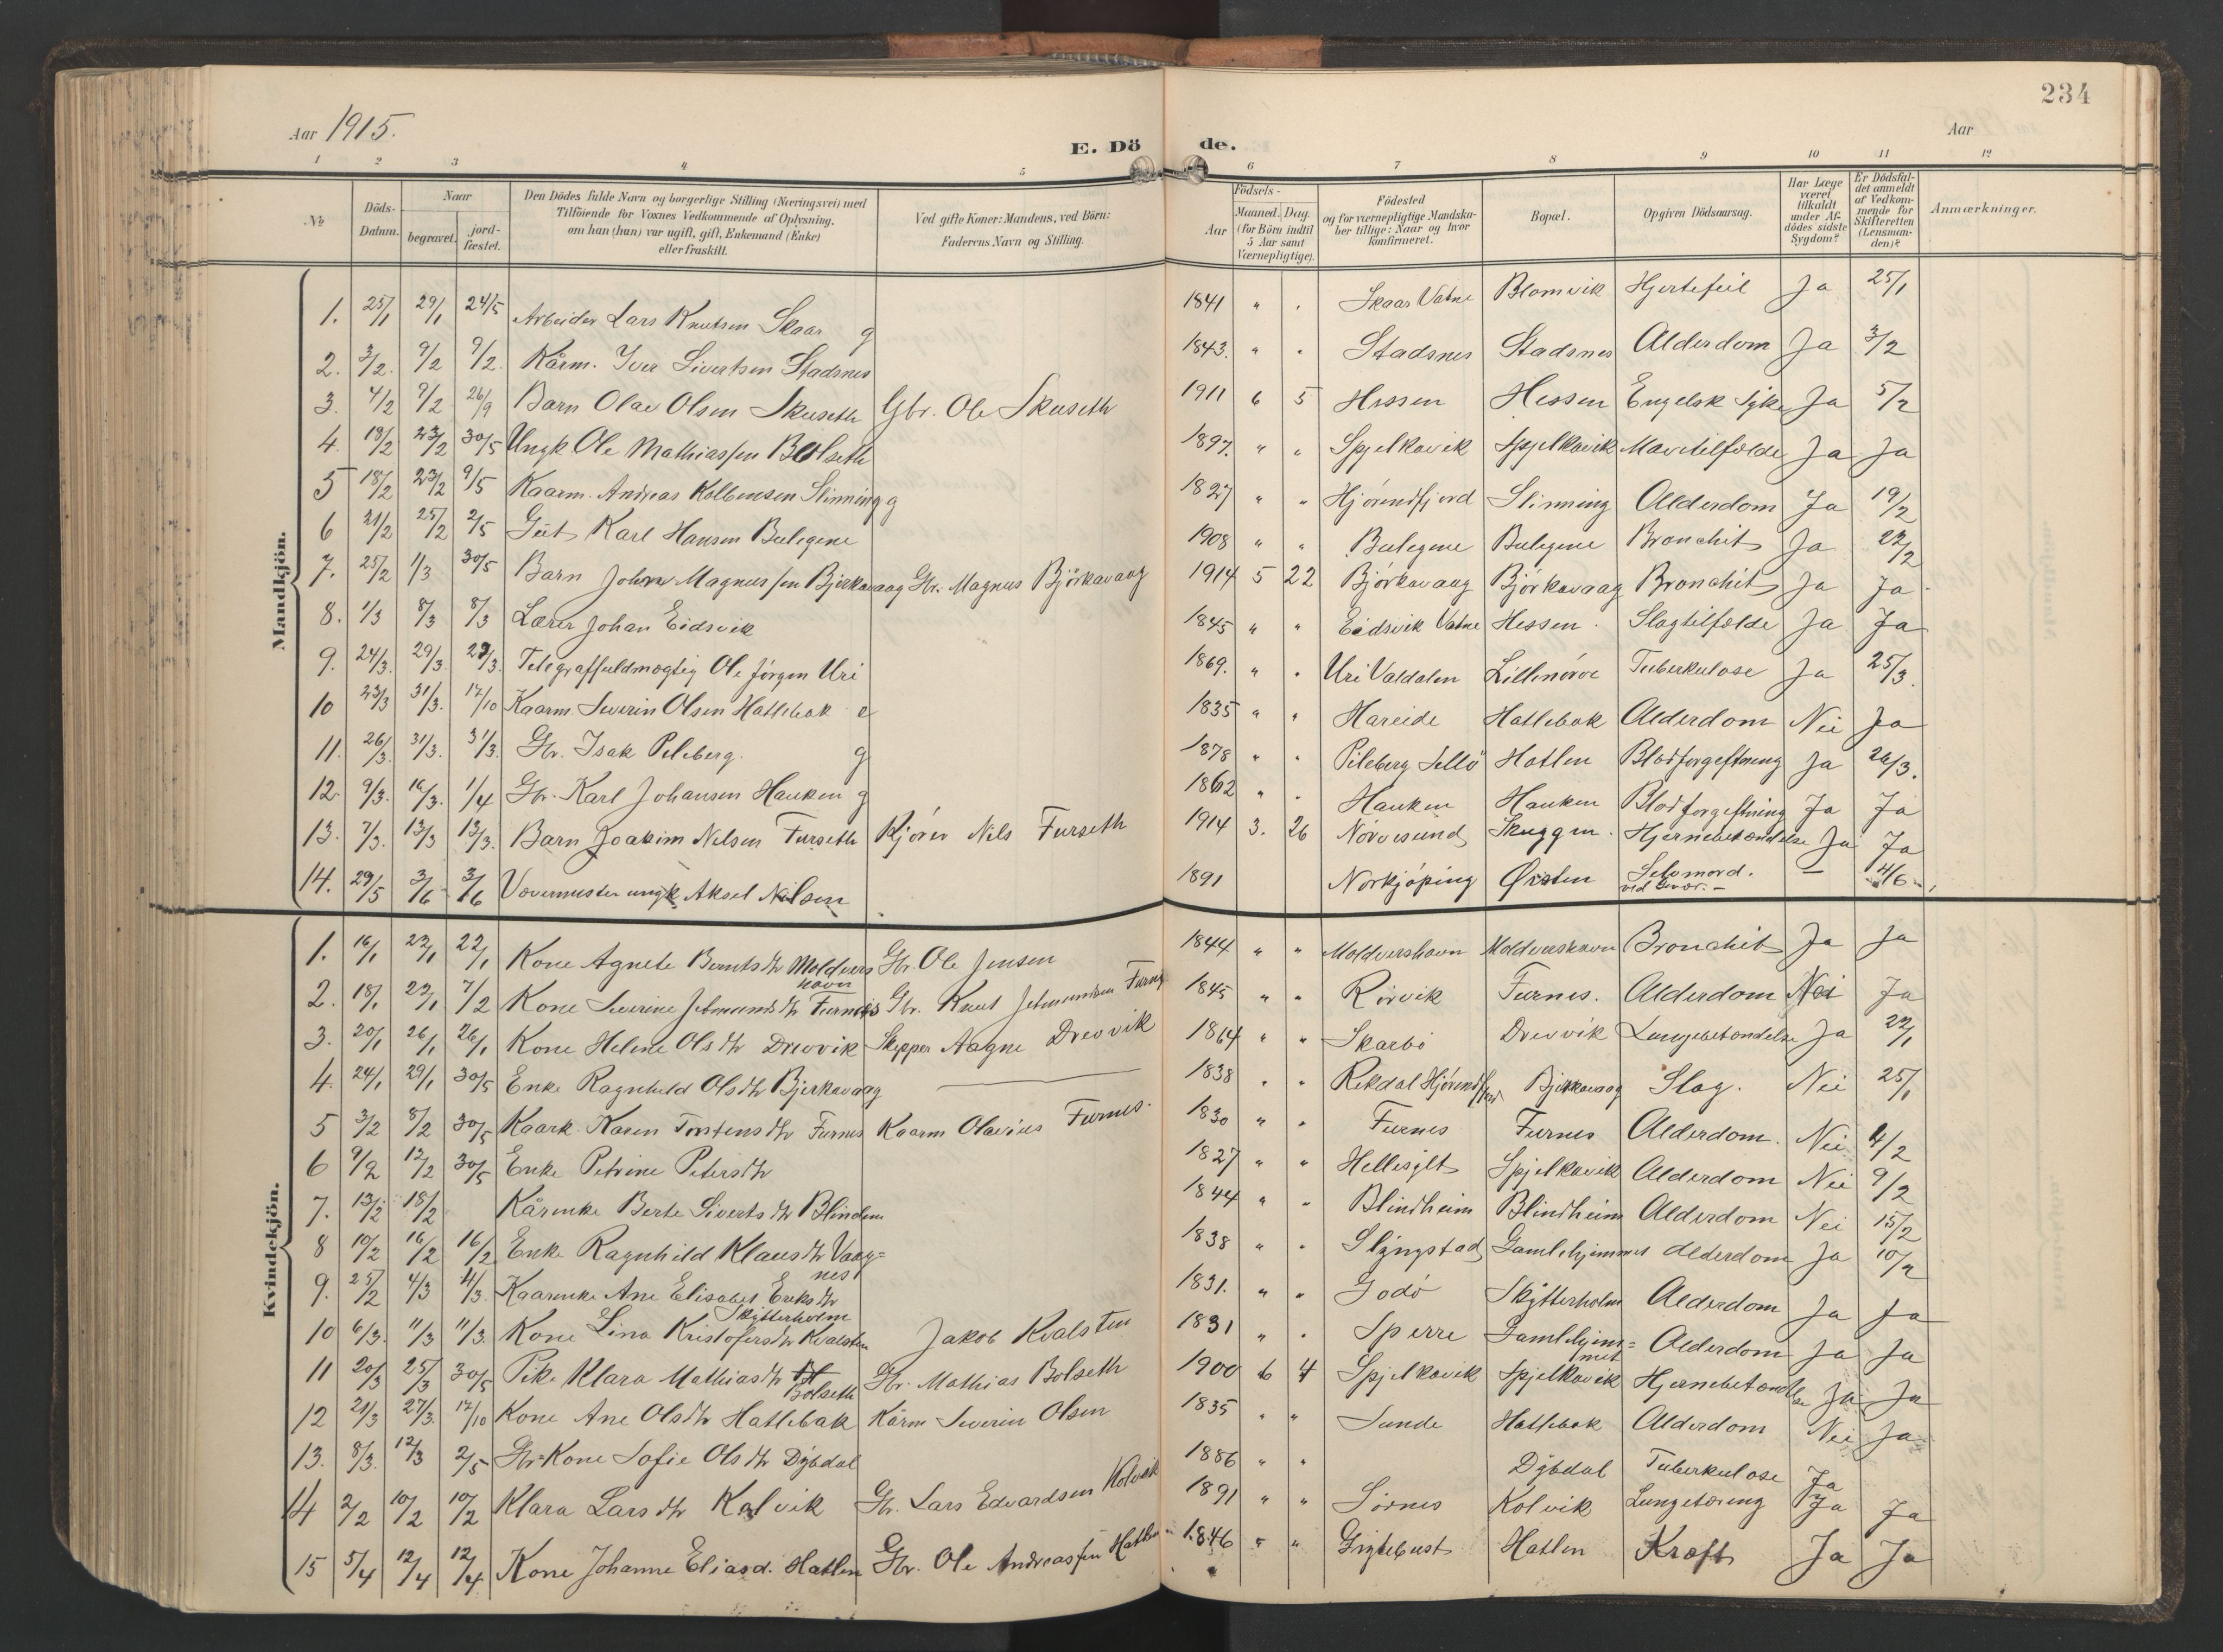 234
Aar 1915.
Aar
E. Dö de.
1 2 3 4 5 6 7 8 9 10 11 12
№ Döds-Datum. Naar begravet. jord-fæstet. Den Dödes fulde Navn og borgerlige Stilling (Næringsvei) med Tilföiende for Voxnes Vedkommende af Oplysning, om han (hun) var ugift, gift, Enkemand (Enke) eller fraskilt. Ved gifte Koner: Mandens, ved Börn: Faderens Navn og Stilling. Födsels- Aar Maaned. Dag. (for Börn indtil 5 Aar samt Værnepligtige). Födested og for værnepligtige Mandskaber tillige: Naar og hvor konfirmeret. Bopæl. Opgiven Dödsaarsag. Har Læge været tilkaldt under Afdödes sidste Sygdom? Er Dödsfaldet anmeldt af Vedkommende for Skifteretten (Lensmanden)? Anmærkninger.
Mandkjön.
1. 25/1 29/1 24/5 Arbeider Lars Knutsen Skaar g 1841 " " Skaar Vatne Blomvik Hjertefeil Ja 25/1
2. 3/2. 9/2 9/2. Kårm. Iver Sivertsen Stadsnes 1843. " " Stadsnes Stadsnes Alderdom Ja 3/2
3. 4/2 9/2 26/9 Barn Olav Olsen Skuseth Gbr. Ole Skuseth 1911 6 5 Hessen Hessen Engelsk Syke Ja 5/2
4. 18/2 23/2 30/5 Ungk Ole Mathiassen Bolseth 1897. " " Spjelkavik Spjelkavik Mavetilfælde Ja Ja
5 18/2 23/2 9/5 Kaarm. Andreas Kolbensen Slinning g 1827 " " Hjörendfjord Slinning Alderdom Ja 19/2
6 21/2 25/2 2/5 Gut Karl Hansen Bulegene 1908 " " Bulegene Bulegene Bronchit Ja 22/2
7. 25/2 1/3 30/5 Barn Johan Magnussen Bjerkavaag Gbr. Magnus Björkavaag 1914 5 22 Björkavaag Björkavaag Bronchit Ja Ja
8. 1/3 8/3 8/3 Lærer Johan Eidsvik 1845 " " Eidsvik Vatne Hessen. Slagtilfælde Ja Ja
9. 24/3. 29/3. 29/3. Telegraffuldmægtig Ole Jørgen Uri 1869. " " Uri Valdalen Lillenörve Tuberkulose Ja 25/3.
10 23/3 31/3. 17/10 Kaarm. Severin Olsen Hatlebak e 1835 " " Hareide Hatlebak Alderdom Nei Ja
11. 26/3. 31/3. 31/3. Gbr. Isak Peleberg. g 1878 " " Pileberg Hatlen Blodforgeftning Ja 26/3.
12. 9/3. 16/3. 1/4 Gbr. Karl Johansen Hauken g 1862 " " Hauken Hauken Blodforgeftning Ja Ja
13. 7/3. 13/3 13/3. Barn Joakim Nilsen Furseth Kjörer Nils Furseth 1914 3. 26 Nörvesund Skuggen. Hjernebetændelse Ja Ja
14. 29/5 3/6 3/6 Vævemester ungk. Aksel Nilsen 1891 Norkjöping Ørsten Selvmord. ved Gevær. — — 14/6
Kvindekjön.
1. 16/1 22/1 22/1 Kone Agnete Bernts dtr Moldvershavn Gbr. Ole Jensen 1844 " " Moldvershavn Moldvershavn Bronchit Ja Ja
2. 18/1 22/1 7/2 Kone Severine Jetmunds dtr Furnes Gbr. Knut Jetmundsen Furnes 1845 " " Rörvik Furnes. Alderdom Nei Ja
3. 20/1 26/1 26/1 Kone Helene Ols dtr Drevvik Skipper Aagne Drevvik 1864 " " Skarbö Drevvik Lungebetændelse Ja 22/1
4. 24/1 29/1 30/5 Enke Ragnhild Ols dtr Bjerkavaag — 1838 " " Rekdal Hjörendfjord Bjerkavaag Slag. Nei 25/1
5 3/2 8/2 30/5 Kaark. Karen Torstens dtr Furnes Kaarm Olavius Furnes. 1830 " " Furnes Furnes Alderdom. Nei 4/2
6 9/2 12/2 30/5 Enke Petrine Peters dtr 1827 " " Hellesylt Spjelkavik Alderdom Nei 9/2
7. 13/2 18/2 Kårenke Berte Siverts dtr Blindem 1844 " " Blindheim Blindheim Alderdom Nei 15/2
8 10/2 16/2 16/2 Enke Ragnhild Klaus dtr Vaagnes 1838 " " Slyngstad Gamlehjemmet Alderdom Ja 10/2
9. 25/2 4/3 4/3. Kaarenke Ane Elisabet Eriks dtr Skytterholm 1831. " " Godö Skytterholm Alderdom Ja Ja
10 6/3. 11/3 11/3. Kone Lina Kristofers dtr Kvalsten Jakob Kvalsten 1831 " " Sperre Gamlehjemmet Alderdom Ja Ja
11 20/3 25/3 30/5 Pike Klara Mathias dtr Bolseth Gbr. Mathias Bolseth 1900 6 4 Spjelkavik Spjelkavik Hjernebetændelse Ja Ja
12 21/3 27/3. 17/10 Kone Ane Ols dtr Hatlebak Kårm Severin Olsen 1835 " " Sunde Hatlebak Alderdom Nei Ja
13. 8/3. 12/3 2/5 Gbr-Kone Sofie Ols dtr Dybdal 1886 " " Dybdal Tuberkulose Ja
14 2/2 10/2 10/2 Klara Lars dtr Kolvik Gbr. Lars Edvardsen Kolvik 1891 " " Sörnes Kolvik Lungetæring Ja Ja
15 5/4 12/4 12/4 Kone Johanne Eliasd. Hatlen Gbr. Ole Andreassen Hatlen 1846 " " Gigtebust Hatlen Kræft Ja Ja